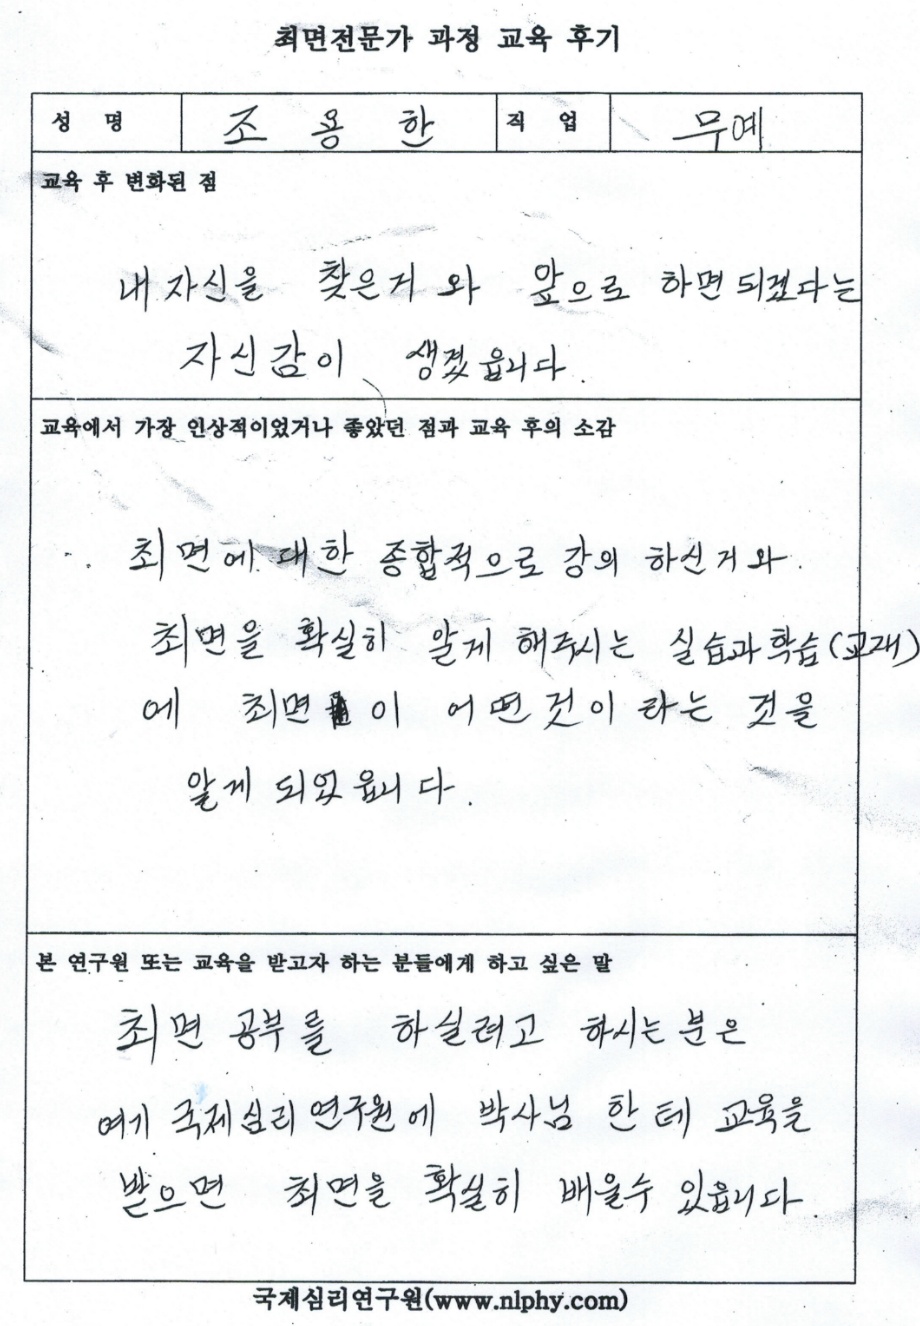 최면전문가 과정 교육 후기
성 명 조 용 한 직 업 무예
교육 후 변화된 점
내 자신을 찾은거 와 앞으로 하면 되겠다는
자신감이 생겼읍니다.
교육에서 가장 인상적이었거나 좋았던 점과 교육 후의 소감
최면에 대한 종합적으로 강의 하신거와
최면을 확실히 알게 해주시는 실습과 학습(교재)
에 최면 이 어떤것이 라는 것을
알게 되었읍니다.
본 연구원 또는 교육을 받고자 하는 분들에게 하고 싶은 말
최면 공부를 하실려고 하시는분은
여기 국제심리연구원에 박사님 한테 교육을
받으면 최면을 확실히 배울수 있읍니다.
국제심리연구원(www.nlphy.com)